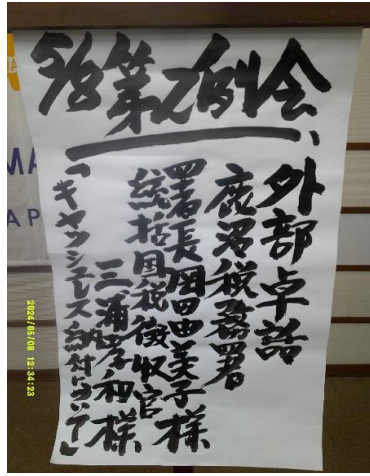 5/8 第2例会、
外部卓話
鹿沼税務署
署長岡田由美子様
統括国税徴収官
三浦孝和様
「キャッシュレス納付について」
MA
AP
2024/05/08 12:34:23